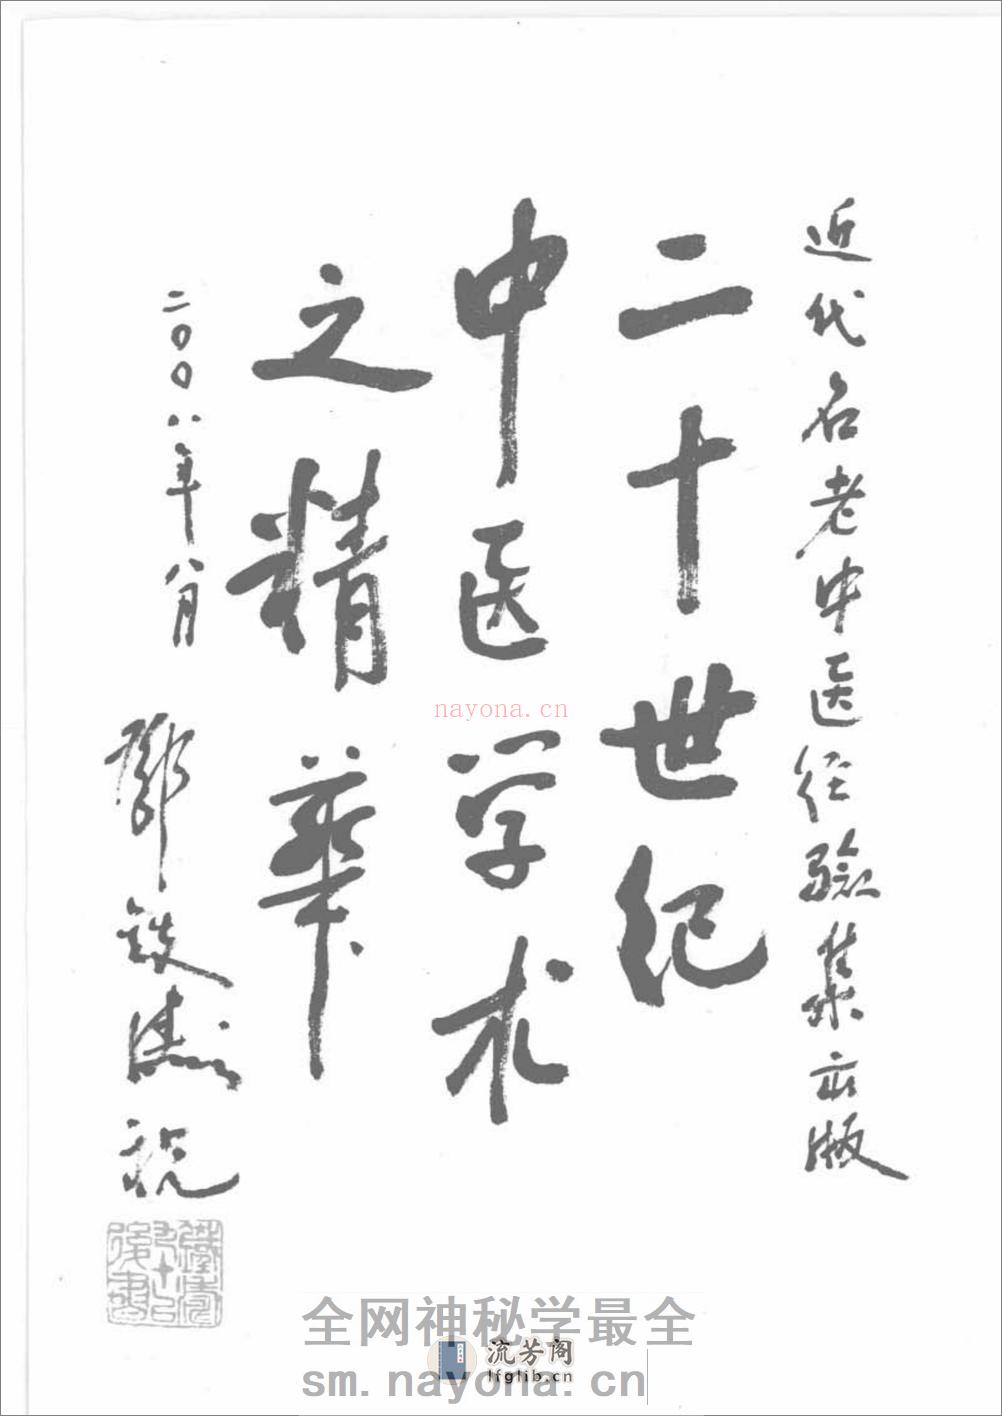 近代名老中医经验集出版
二十世纪
中医学术
之精华
二〇〇八年八月
邓铁涛祝
nayona.cn
全网神秘学最全
流芳阁
lfglib.cn
sm.nayona.cn